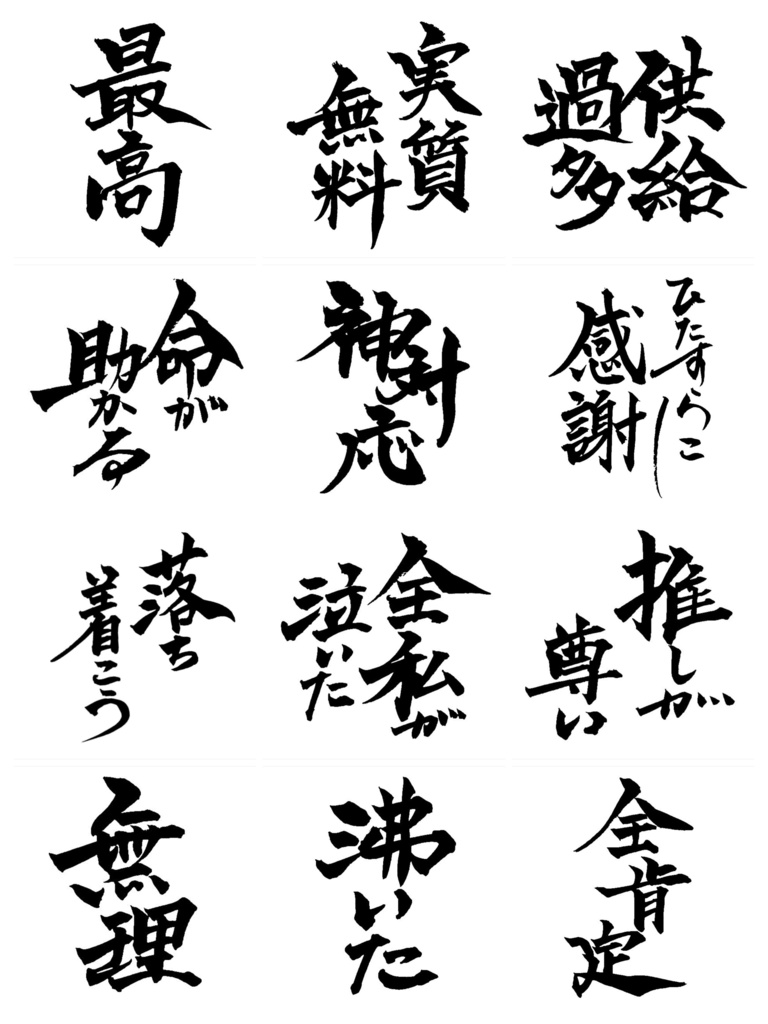 最高
実質
無料
供給
過多
命が
助かる
神対応
ひたすらに
感謝
落ち
着こう
全私が
泣いた
推しが
尊い
無理
沸いた
全肯定